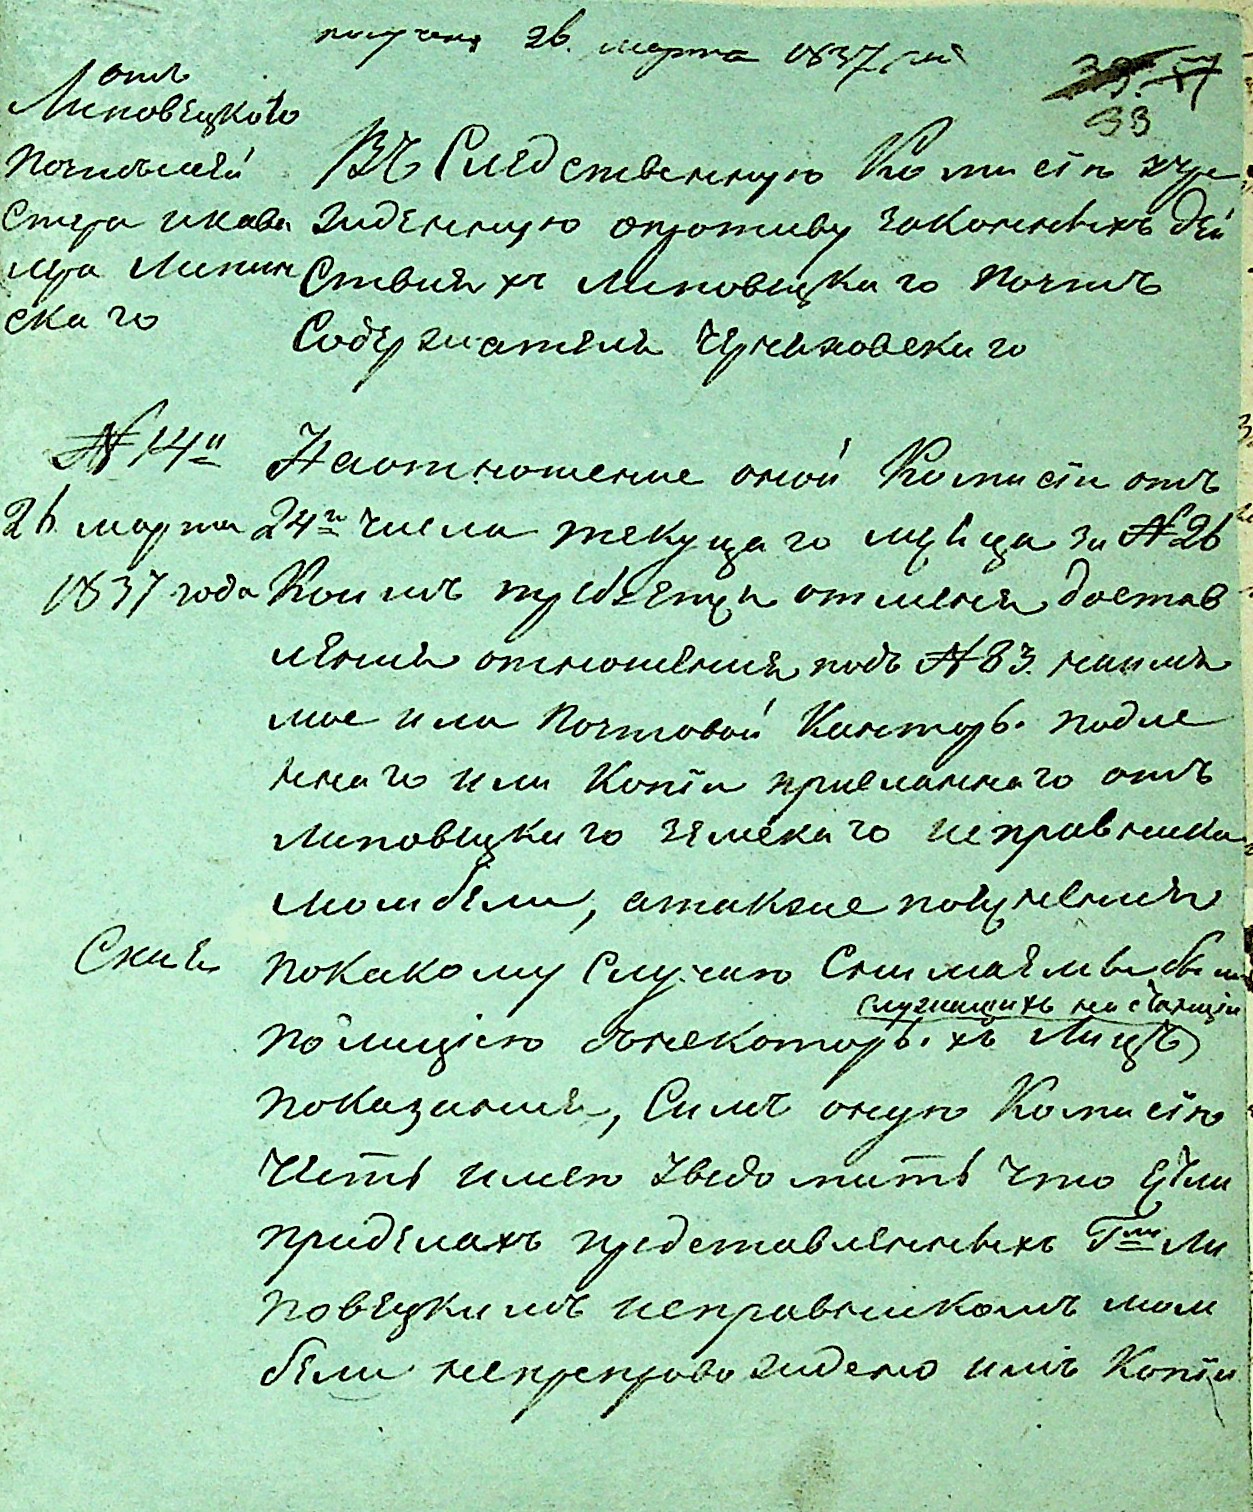 получено 26. марта 1837 го
33
отъ
Липовецкого
Почтмей
стера и кава
лера Липин
скаго
Въ Следственную Комисію учре
жденную опротиву законныхъ дей
Ствияхъ Липовецкаго Почтъ
Содержателя Чернаховскаго
№ 14й
26 марта
1837 года
На отношение оной Комисіи отъ
24го числа текущаго мѣсяца за № 26
Коимъ требуется отменя достав
ления отношения подъ № 83. на имя
мое или Почтовой Канторы. подле
ннаго или Копіи присланнаго отъ
Липовецкаго земскаго исправника
Момбели, атакже поуценения
Сния
покакому Случаю Снимаемы были
служащихъ на станціи
полициею снекоторыхъ Лицъ
показания, Симъ оную Комисію
Честь имею уведомить что если
приделахъ представленныхъ Гмъ Ли
повецкимъ исправникомъ мом
бели непрепровождено имъ Копіи